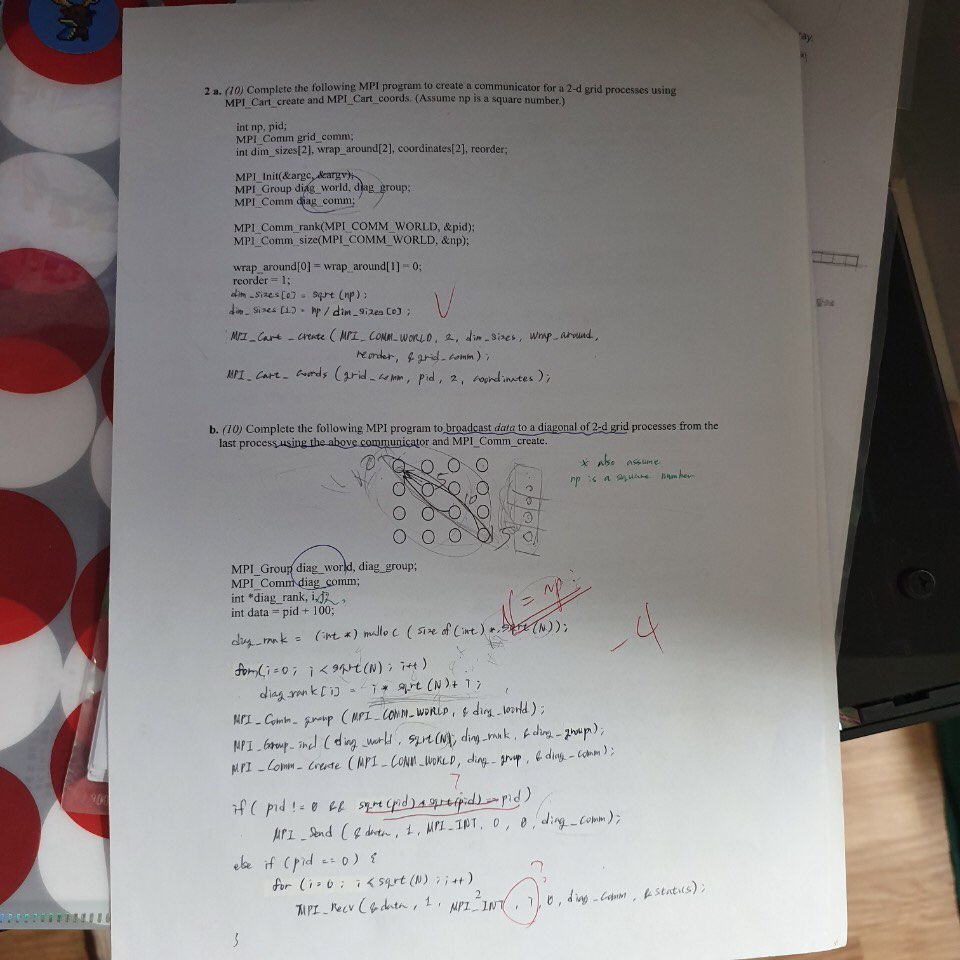 2 a. (10) Complete the following MPI program to create a communicator for a 2-d grid processes using
MPI_Cart_create and MPI_Cart_coords. (Assume np is a square number.)
int np, pid;
MPI_Comm grid_comm;
int dim_sizes[2], wrap_around[2], coordinates[2], reorder;
MPI_Init(&argc, &argv);
MPI_Group diag_world, diag_group;
MPI_Comm diag_comm;
MPI_Comm_rank(MPI_COMM_WORLD, &pid);
MPI_Comm_size(MPI_COMM_WORLD, &np);
wrap_around[0] = wrap_around[1] = 0;
reorder = 1;
dim_sizes[0] = sqrt(np);
dim_sizes[1] = np/dim_sizes[0];
MPI_Cart_create (MPI_COMM_WORLD, 2, dim_sizes, wrap_around,
reorder, &grid_comm);
MPI_Cart_Coords (grid_comm, pid, 2, coordinates);
b. (10) Complete the following MPI program to broadcast data to a diagonal of 2-d grid processes from the
last process using the above communicator and MPI_Comm_create.
* also assume
np is a square number
MPI_Group diag_world, diag_group;
MPI_Comm diag_comm;
int *diag_rank, i,
int data = pid + 100;
N = np;
diag_rank = (int *) malloc (size of (int) * sqrt(N));
-4
for(i=0; i<sqrt(N); i++)
diag_rank[i] = i * sqrt(N) + i;
MPI_Comm_group (MPI_COMM_WORLD, &diag_world);
MPI_Group_incl (diag_world, sqrt(N), diag_rank, &diag_group);
MPI_Comm_create (MPI_COMM_WORLD, diag_group, &diag_comm);
if( pid != 0 && sqrt(pid)*sqrt(pid) == pid)
MPI_Send (&data, 1, MPI_INT, 0, 0, diag_comm);
else if (pid == 0) {
for (i=0; i<sqrt(N); i++)
MPI_Recv (&data, 1, MPI_INT, i, 0, diag_comm, &status);
}